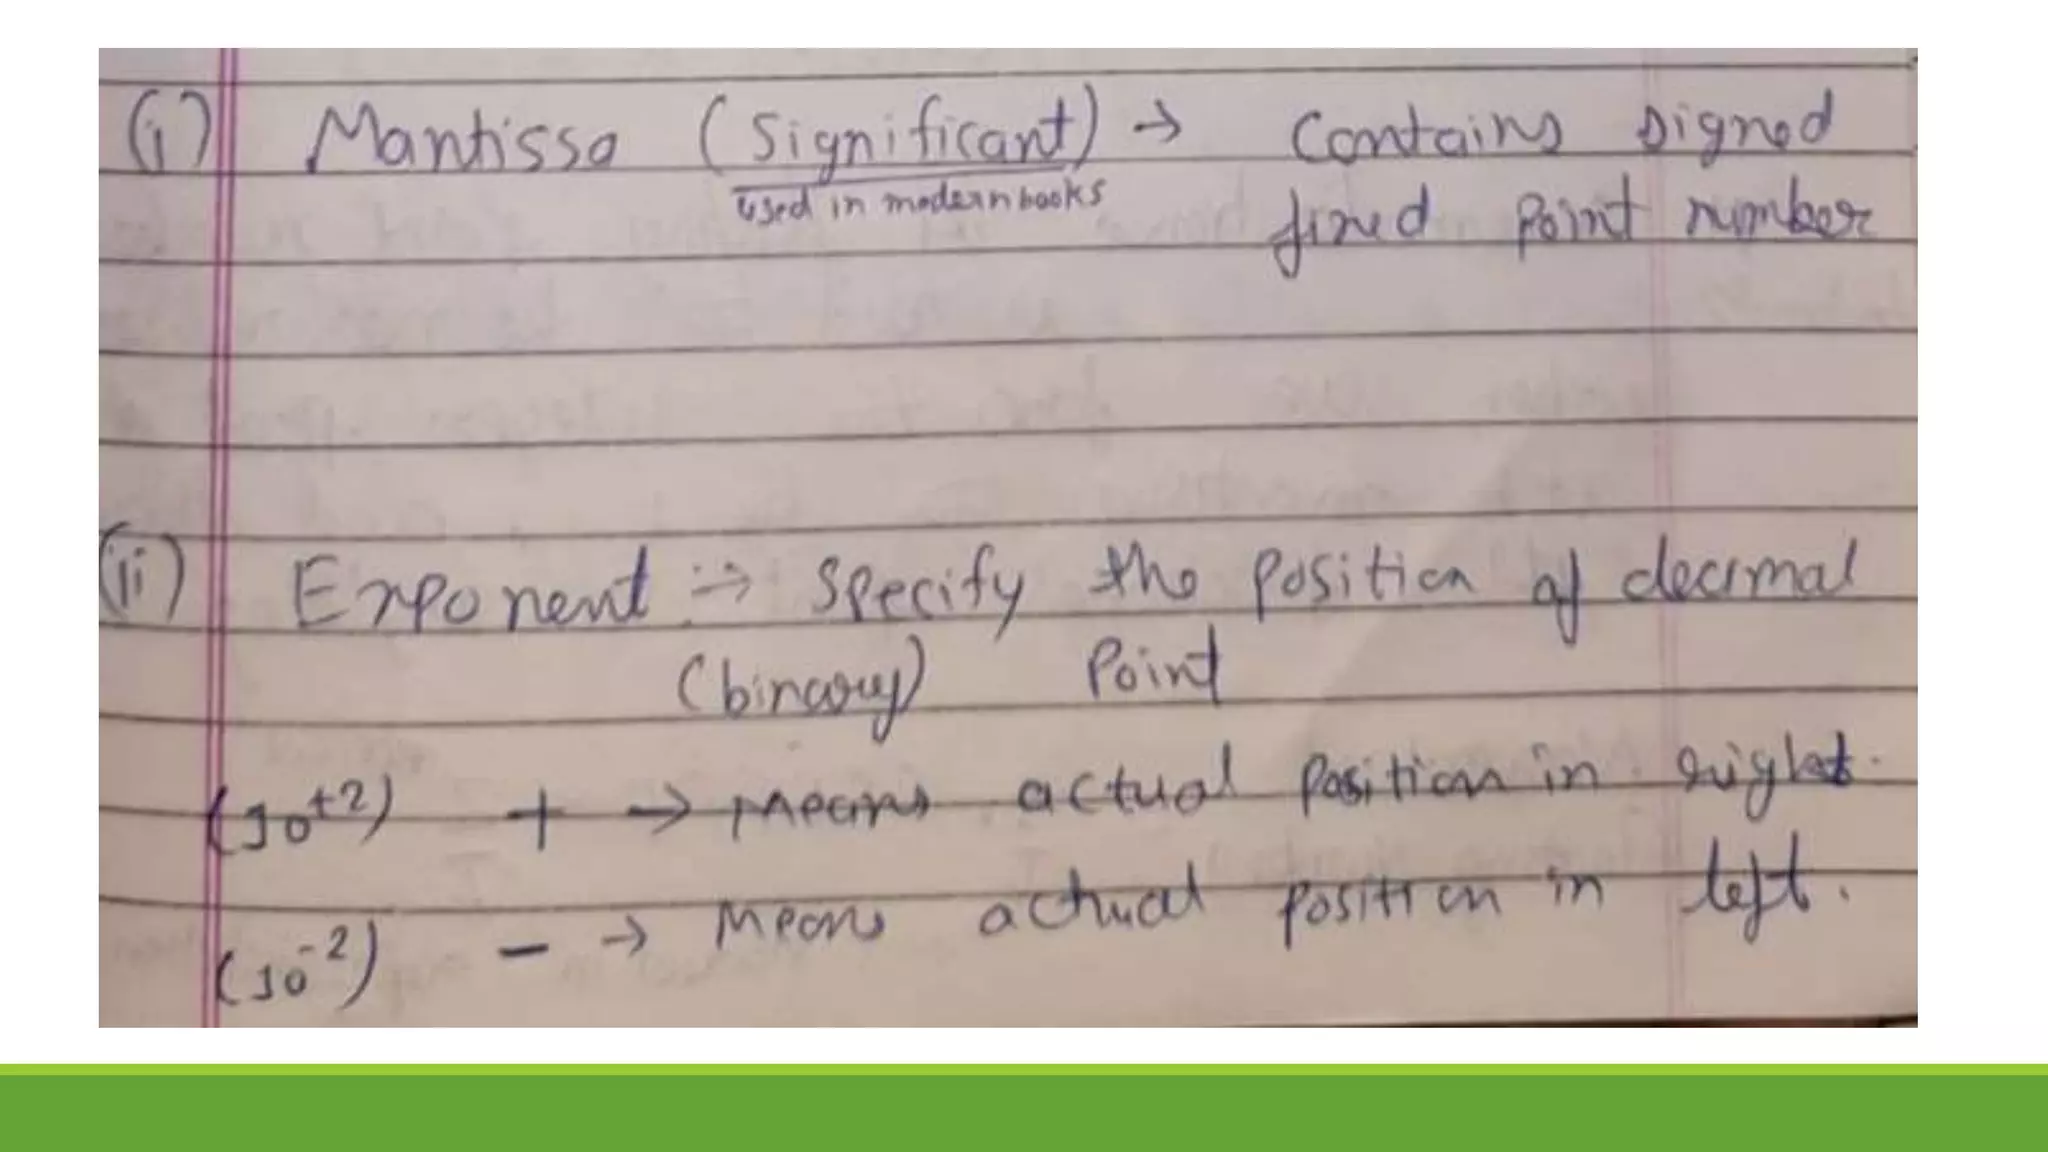 (i) Mantissa (Significant) → Contains signed
used in modern books
fixed point number
(ii) Exponent :→ Specify the position of decimal
(binary) Point
(10⁺²) + → Means actual position in right.
(10⁻²) - → Means actual position in left.